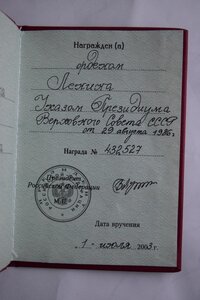 Награжден (а)
орденом
Ленина
Указом Президиума
Верховного Совета СССР
от 29 августа 1986г.
Награда № 432527
Президент
Российской Федерации
М.П.
Дата вручения
1 июля 2003 г.